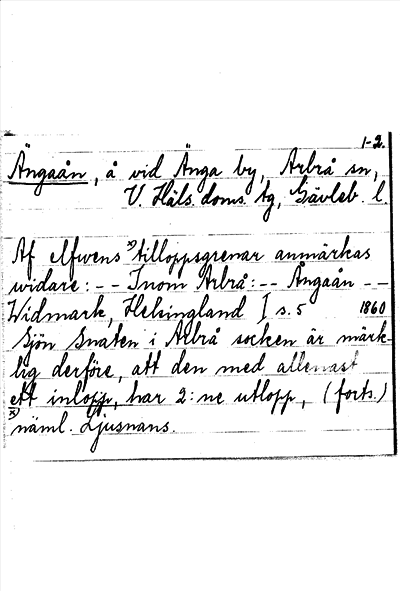 1-2.
Ängaån, å vid Änga by, Arbrå sn,
V. Häls. doms. tg, Gävleb. l.
Af elfvens x) tilloppsgrenar anmärkas
widare: -- Inom Arbrå: -- Ångaån --
Widmark, Helsingland I s. 5 1860
Sjön Snaten i Arbrå socken är märk-
lig derföre, att den med allenast
ett inlopp, har 2:ne utlopp, (forts.)
x) näml. Ljusnans.